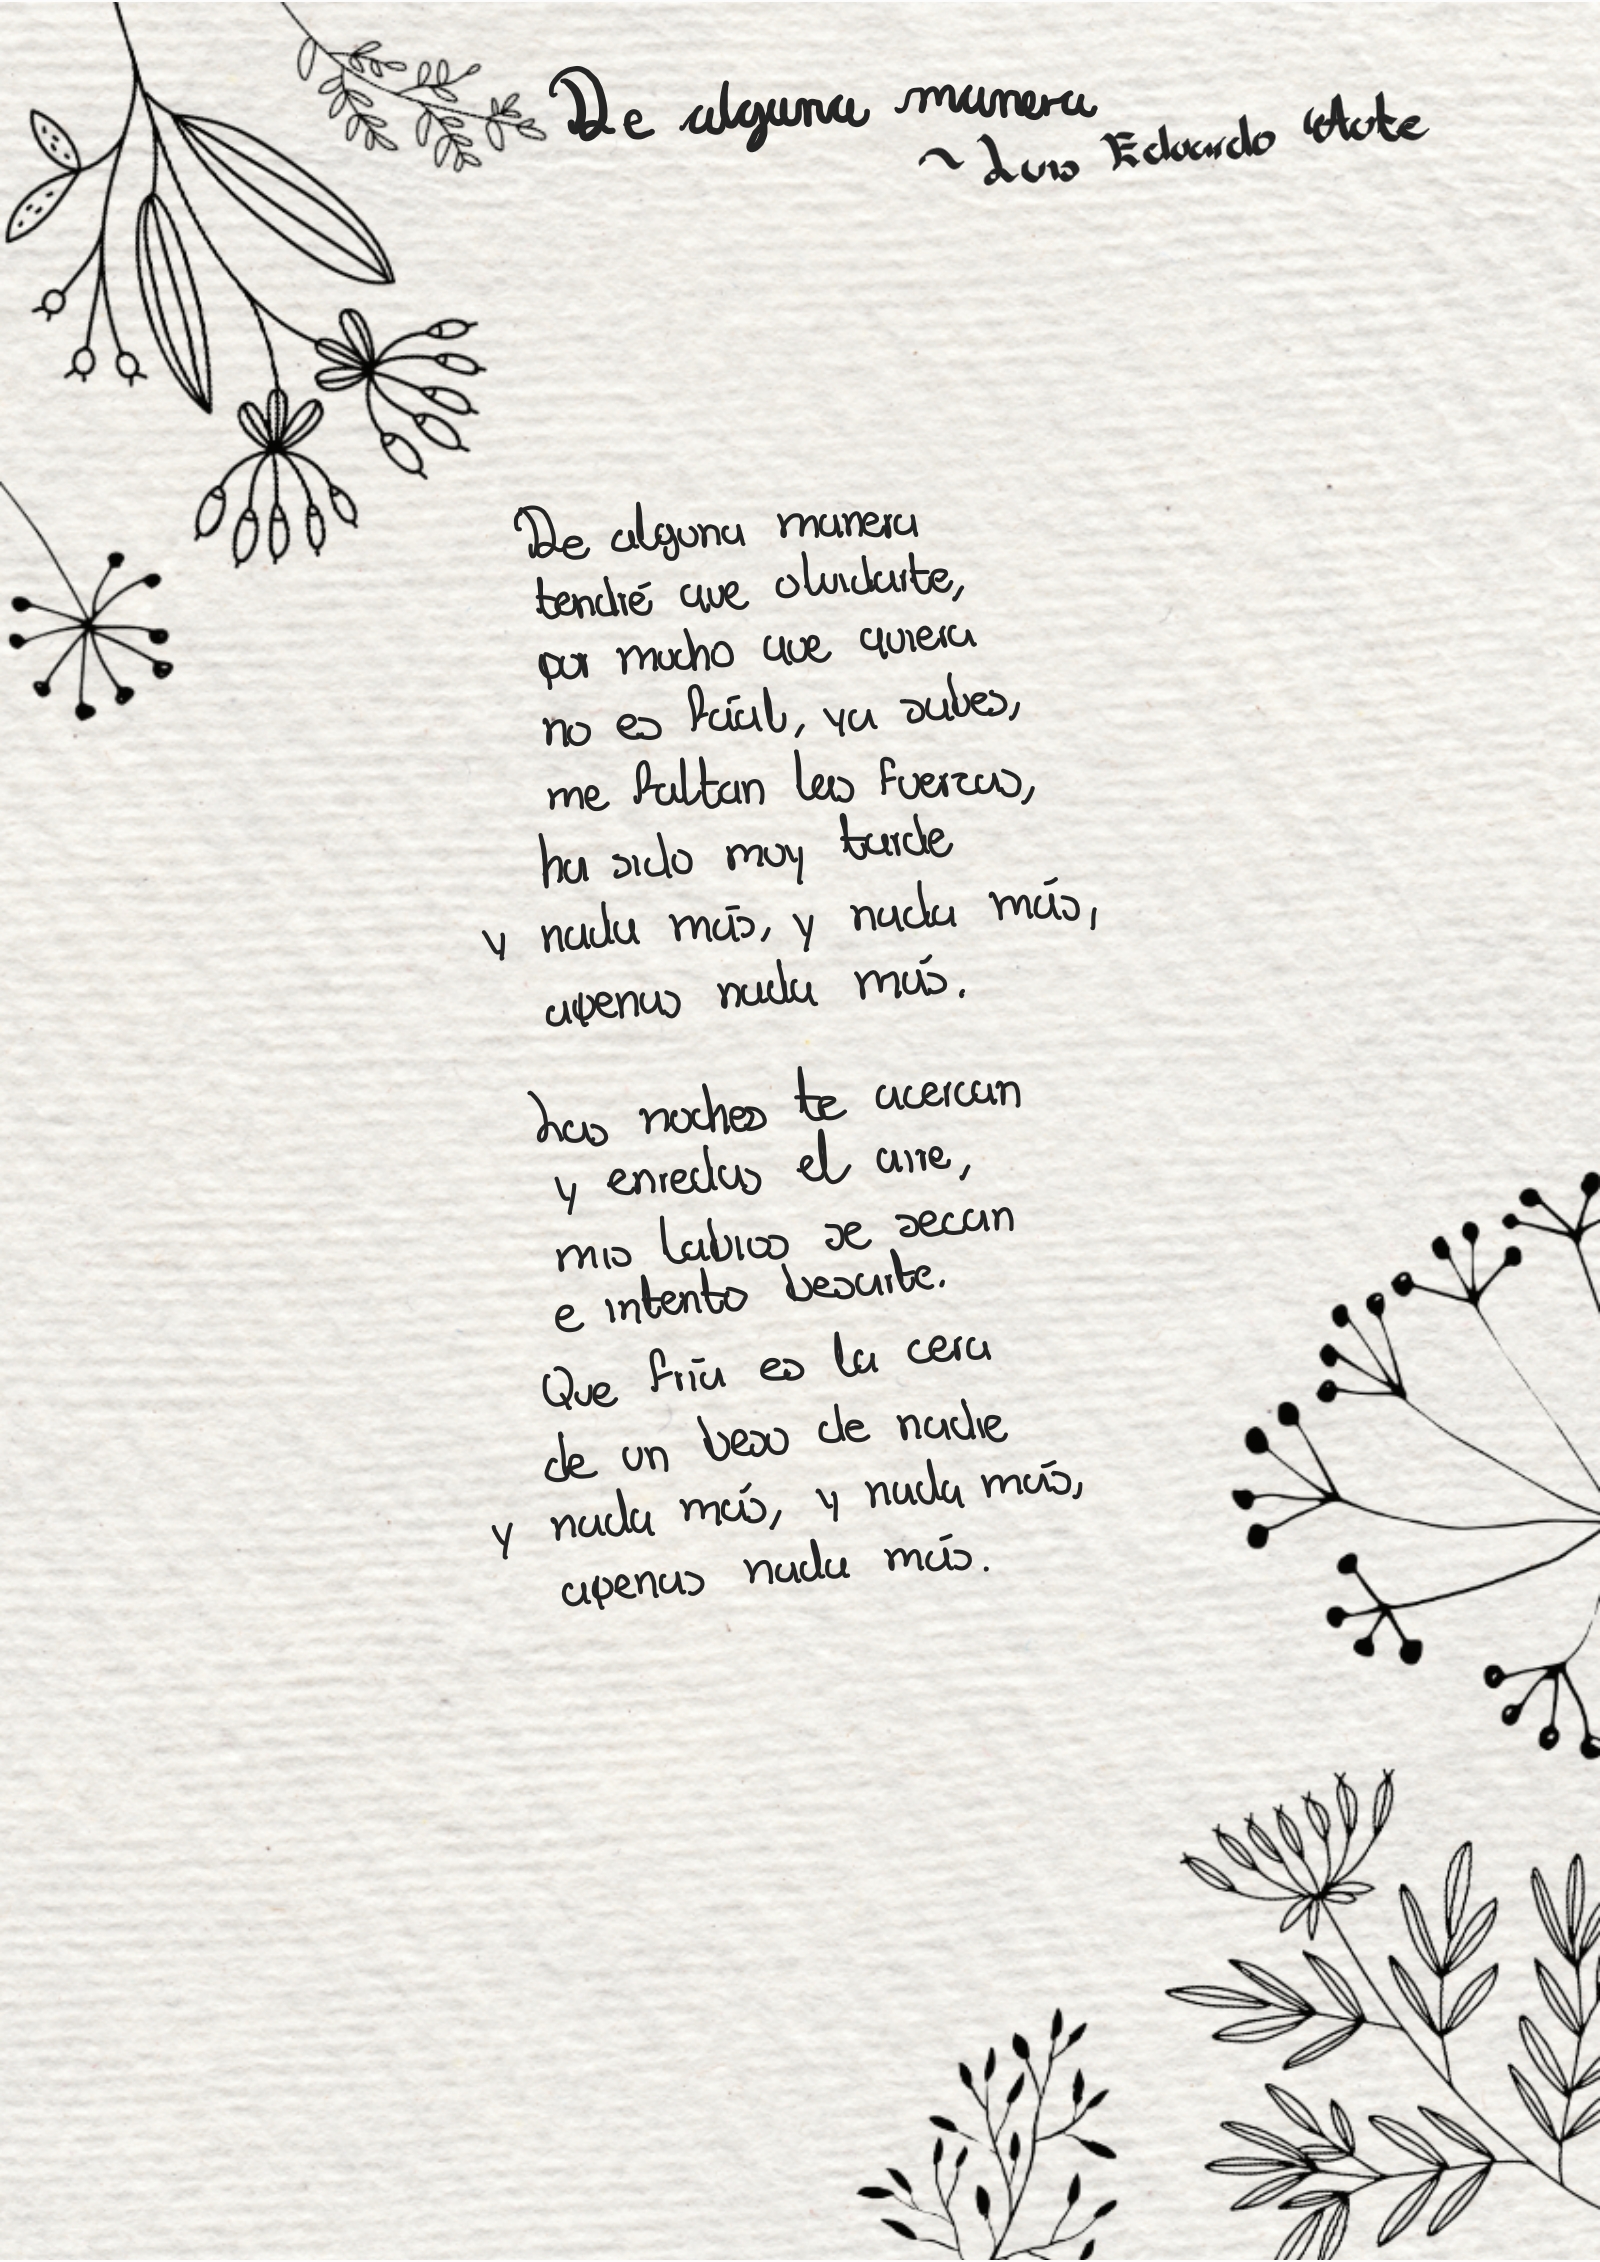 De alguna manera
~ Luis Eduardo Aute
De alguna manera
tendré que olvidarte,
por mucho que quiera
no es fácil, ya sabes,
me faltan las fuerzas,
ha sido muy tarde
y nada más, y nada más,
apenas nada más.
Las noches te acercan
y enredas el aire,
mis labios se secan
e intento besarte.
Que fría es la cera
de un beso de nadie
y nada más, y nada más,
apenas nada más.